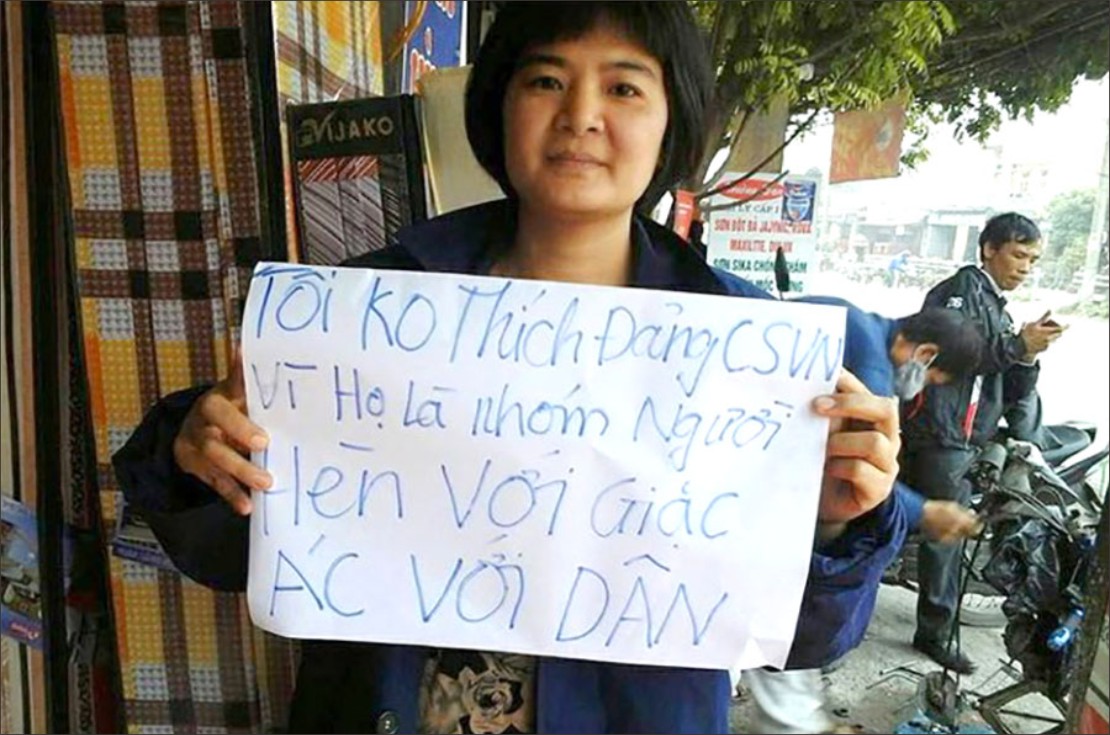 VIJAKO
Tôi KO Thích Đảng CSVN
Vì Họ Là Nhóm Người
Hèn Với Giặc
ÁC VỚI DÂN
LÝ CẤP 1
SƠN BỘT BẢ JAJYNIC, KOVA
MAXILITE, DULUX
SƠN SIKA CHỐNG THẤM